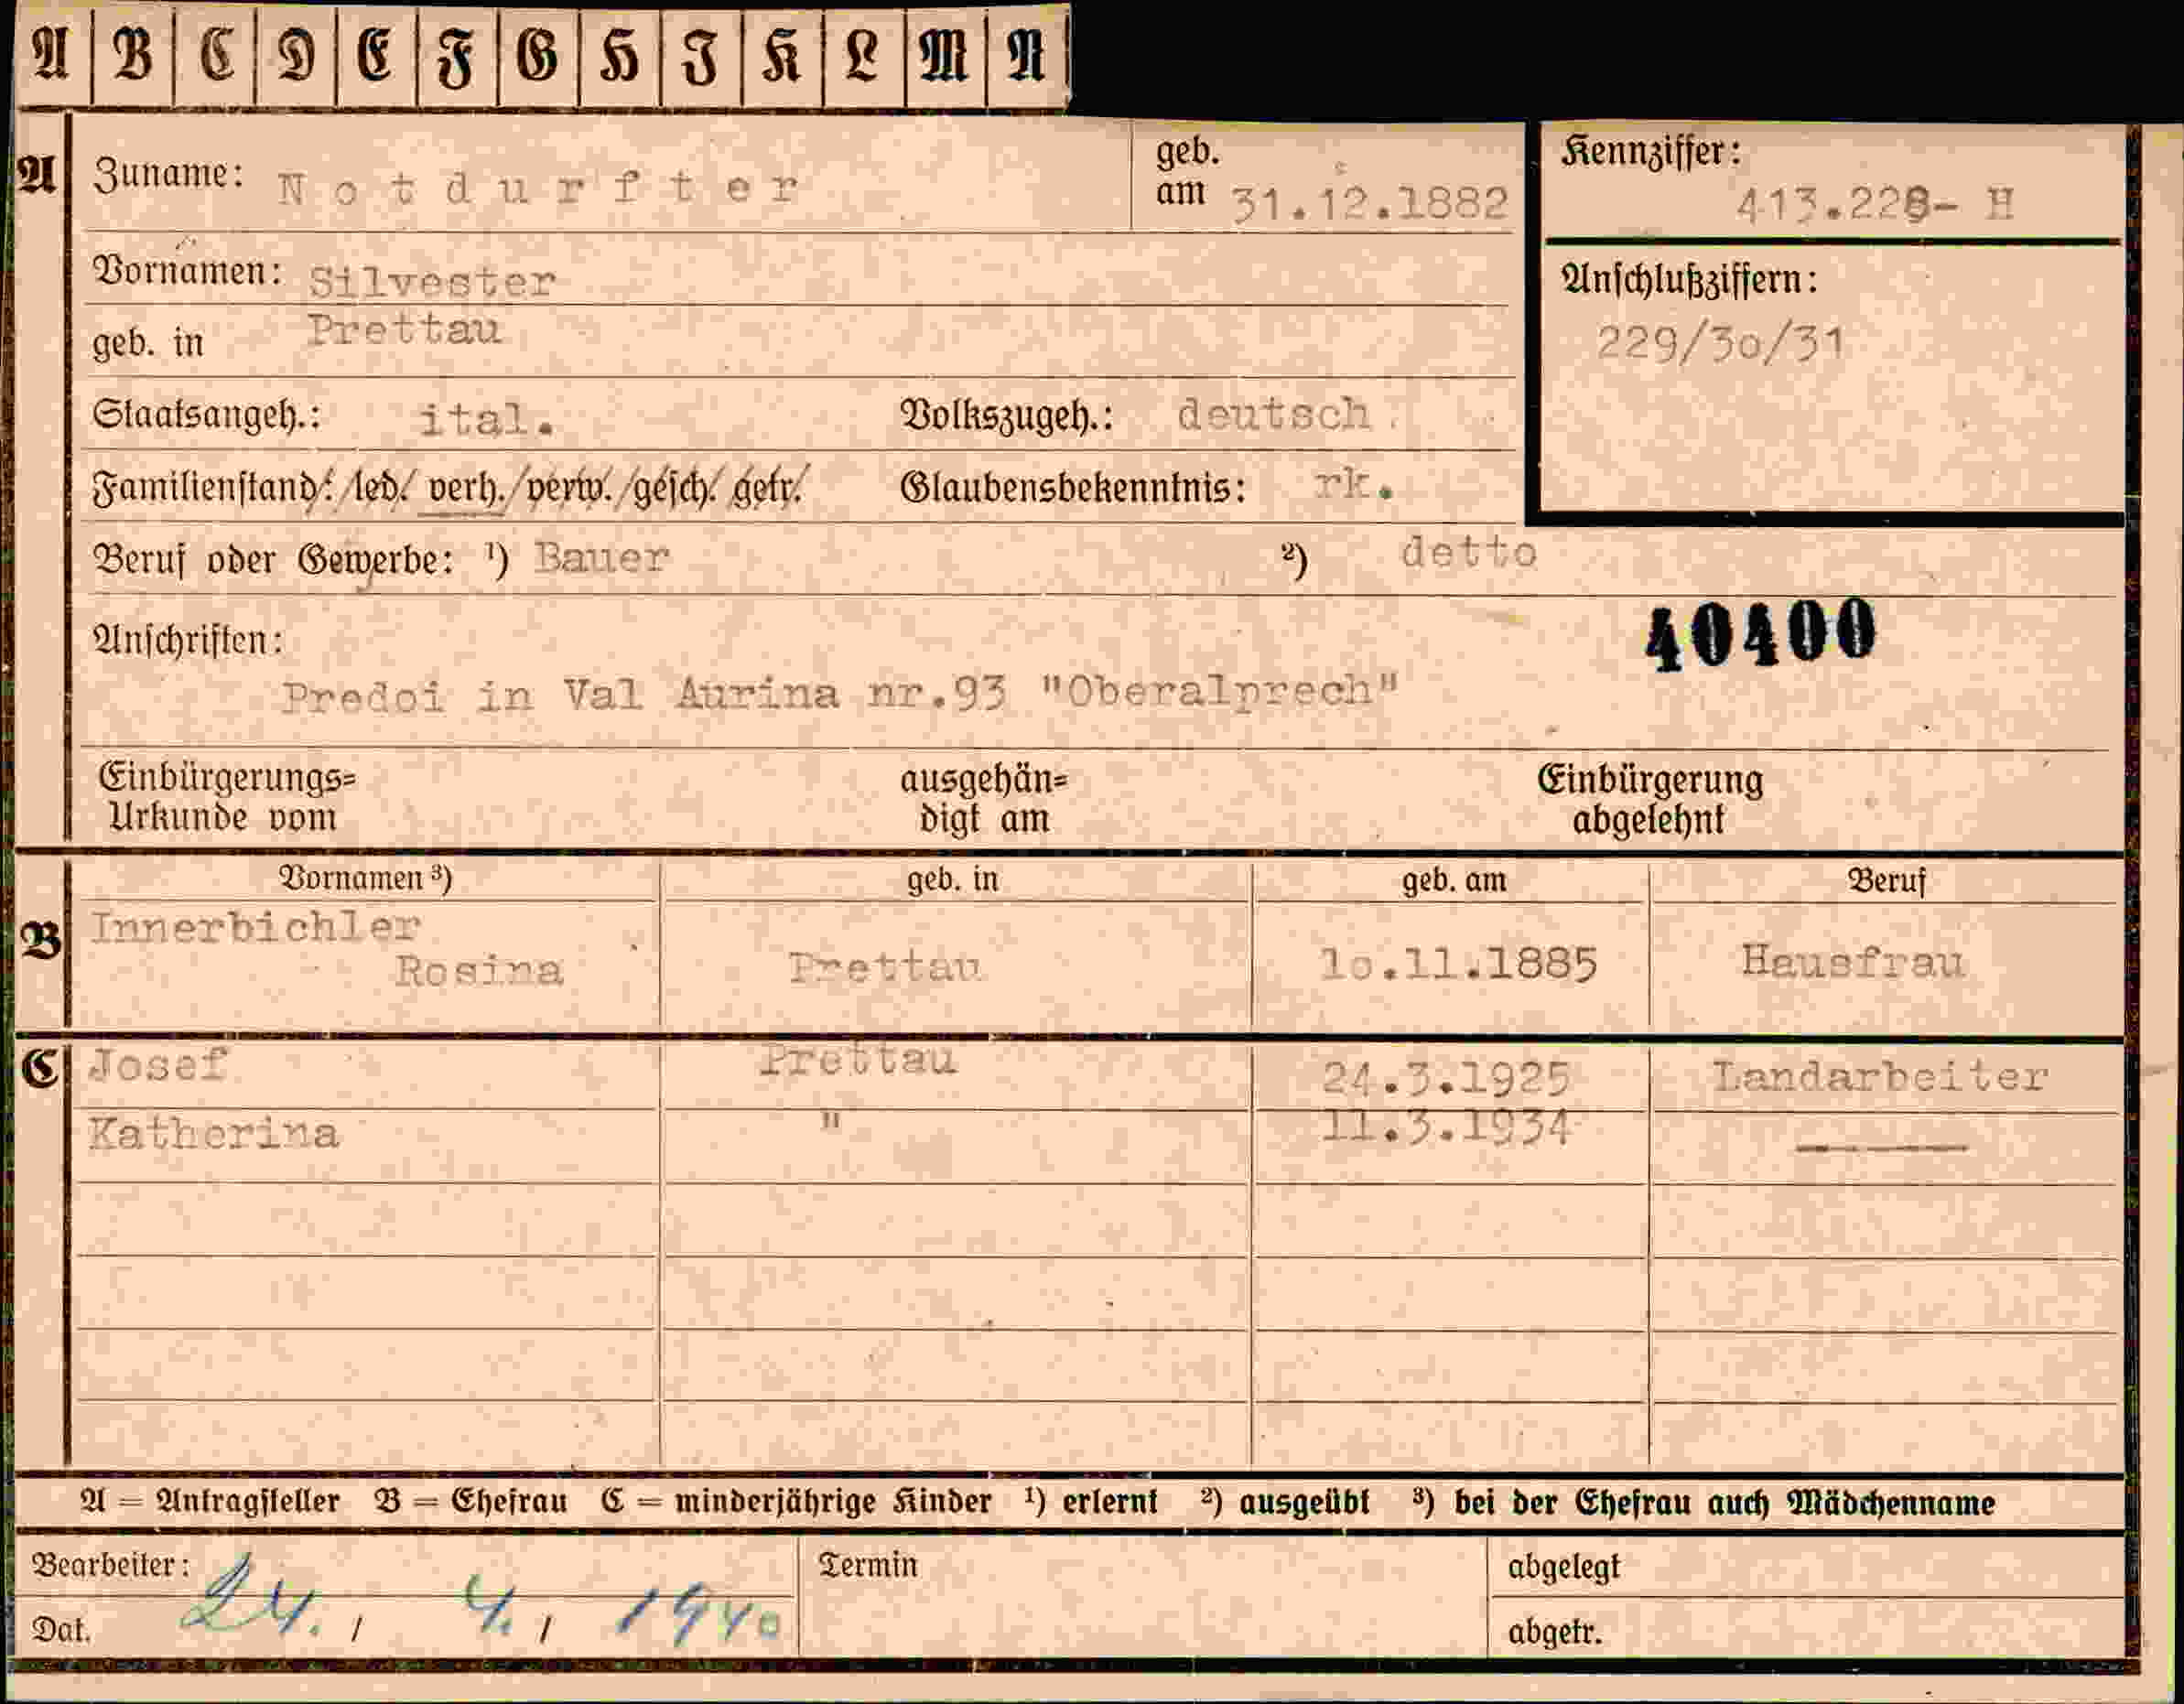 A B C D E F G H I K L M N
A Zuname: Notdurfter geb. am 31.12.1882 Kennziffer: 413.228- H
Vornamen: Silvester Anschlußziffern:
geb. in Prettau 229/3o/31
Staatsangeh.: ital. Volkszugeh.: deutsch.
Familienstand: led. verh. verw. gesch. getr. Glaubensbekenntnis: rk.
Beruf oder Gewerbe: ¹) Bauer ²) detto
Anschriften: 40400
Predoi in Val Aurina nr.93 "Oberalprech"
Einbürgerungs= ausgehän= Einbürgerung
Urkunde vom digt am abgelehnt
Vornamen ³) geb. in geb. am Beruf
B Innerbichler
Rosina Prettau 1o.11.1885 Hausfrau
C Josef Prettau 24.3.1925 Landarbeiter
Katherina " 11.3.1934 ———
A = Antragsteller B = Ehefrau C = minderjährige Kinder ¹) erlernt ²) ausgeübt ³) bei der Ehefrau auch Mädchenname
Bearbeiter: Termin abgelegt
Dat. 24. / 4. / 1940 abgetr.